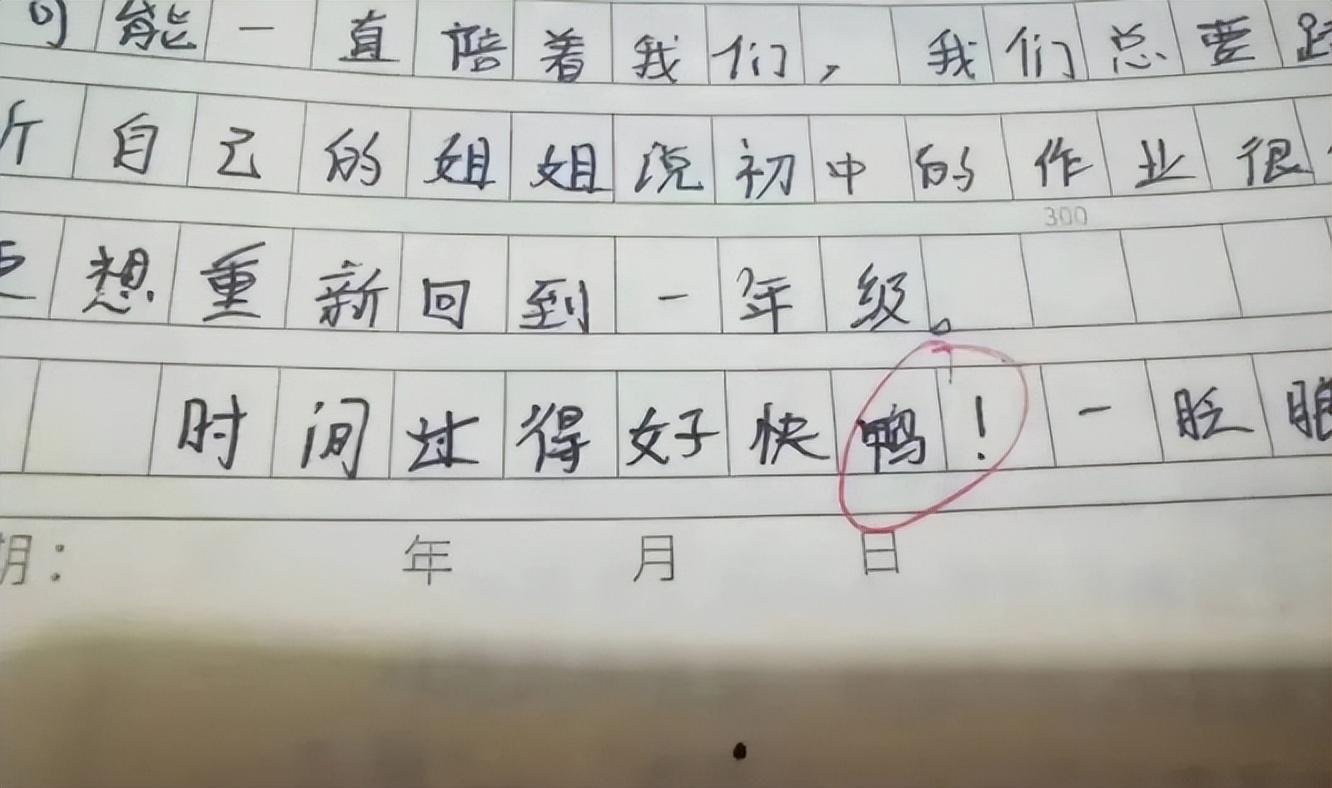 可能一直陪着我们，我们总要
斤自己的姐姐说初中的作业很
300
想重新回到一年级。
时间过得好快鸭！一眨眼
期： 年 月 日